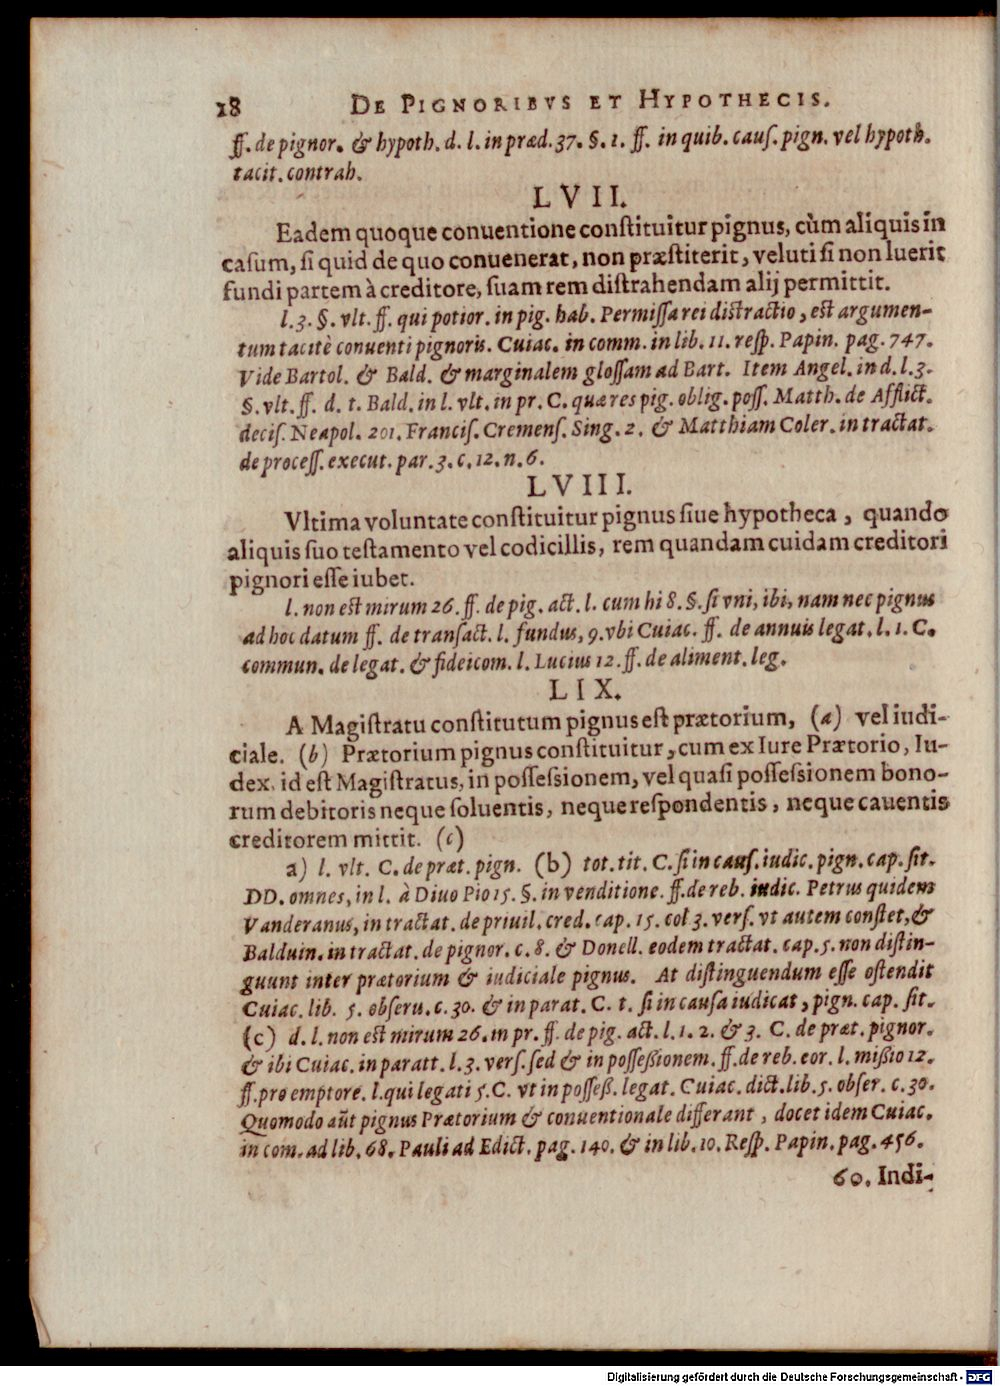 18 DE PIGNORIBVS ET HYPOTHECIS.
ff. de pignor. & hypoth. d. l. in præd. 37. §. 1. ff. in quib. cauſ. pign. vel hypoth.
tacit. contrah.
LVII.
Eadem quoque conuentione conſtituitur pignus, cùm aliquis in
caſum, ſi quid de quo conuenerat, non præſtiterit, veluti ſi non luerit
fundi partem à creditore, ſuam rem diſtrahendam alij permittit.
l. 3. §. vlt. ff. qui potior. in pig. hab. Permiſſa rei diſtractio, eſt argumen-
tum tacitè conuenti pignoris. Cuiac. in comm. in lib. 11. reſp. Papin. pag. 747.
Vide Bartol. & Bald. & marginalem gloſſam ad Bart. Item Angel. in d. l. 3.
§. vlt. ff. d. t. Bald. in l. vlt. in pr. C. quæ res pig. oblig. poſſ. Matth. de Afflict.
deciſ. Neapol. 201. Franciſ. Cremenſ. Sing. 2. & Matthiam Coler. in tractat.
de proceſſ. execut. par. 3. c. 12. n. 6.
LVIII.
Vltima voluntate conſtituitur pignus ſiue hypotheca, quando
aliquis ſuo teſtamento vel codicillis, rem quandam cuidam creditori
pignori eſſe iubet.
l. non eſt mirum 26. ff. de pig. act. l. cum hi 8. §. ſi vni, ibi, nam nec pignus
ad hoc datum ff. de tranſact. l. fundus, 9. vbi Cuiac. ff. de annuis legat. l. 1. C.
commun. de legat. & fideicom. l. Lucius 12. ff. de aliment. leg.
LIX.
A Magiſtratu conſtitutum pignus eſt prætorium, (a) vel iudi-
ciale. (b) Prætorium pignus conſtituitur, cum ex Iure Prætorio, Iu-
dex, id eſt Magiſtratus, in poſſeſsionem, vel quaſi poſſeſsionem bono-
rum debitoris neque ſoluentis, neque reſpondentis, neque cauentis
creditorem mittit. (c)
a) l. vlt. C. de præt. pign. (b) tot. tit. C. ſi in cauſ. iudic. pign. cap. ſit.
DD. omnes, in l. à Diuo Pio 15. §. in venditione. ff. de reb. iudic. Petrus quidem
Vanderanus, in tractat. de priuil. cred. cap. 15. col 3. verſ. vt autem conſtet, &
Balduin. in tractat. de pignor. c. 8. & Donell. eodem tractat. cap. 5. non diſtin-
guunt inter prætorium & iudiciale pignus. At diſtinguendum eſſe oſtendit
Cuiac. lib. 5. obſeru. c. 30. & in parat. C. t. ſi in cauſa iudicat, pign. cap. ſit.
(c) d. l. non eſt mirum 26. in pr. ff. de pig. act. l. 1. 2. & 3. C. de præt. pignor.
& ibi Cuiac. in paratt. l. 3. verſ. ſed & in poſſeßionem. ff. de reb. eor. l. mißio 12.
ff. pro emptore. l. qui legati 5. C. vt in poſſeß. legat. Cuiac. dict. lib. 5. obſer. c. 30.
Quomodo aūt pignus Prætorium & conuentionale differant, docet idem Cuiac.
in com. ad lib. 68. Pauli ad Edict. pag. 140. & in lib. 10. Reſp. Papin. pag. 456.
60. Indi-
Digitalisierung gefördert durch die Deutsche Forschungsgemeinschaft - DFG